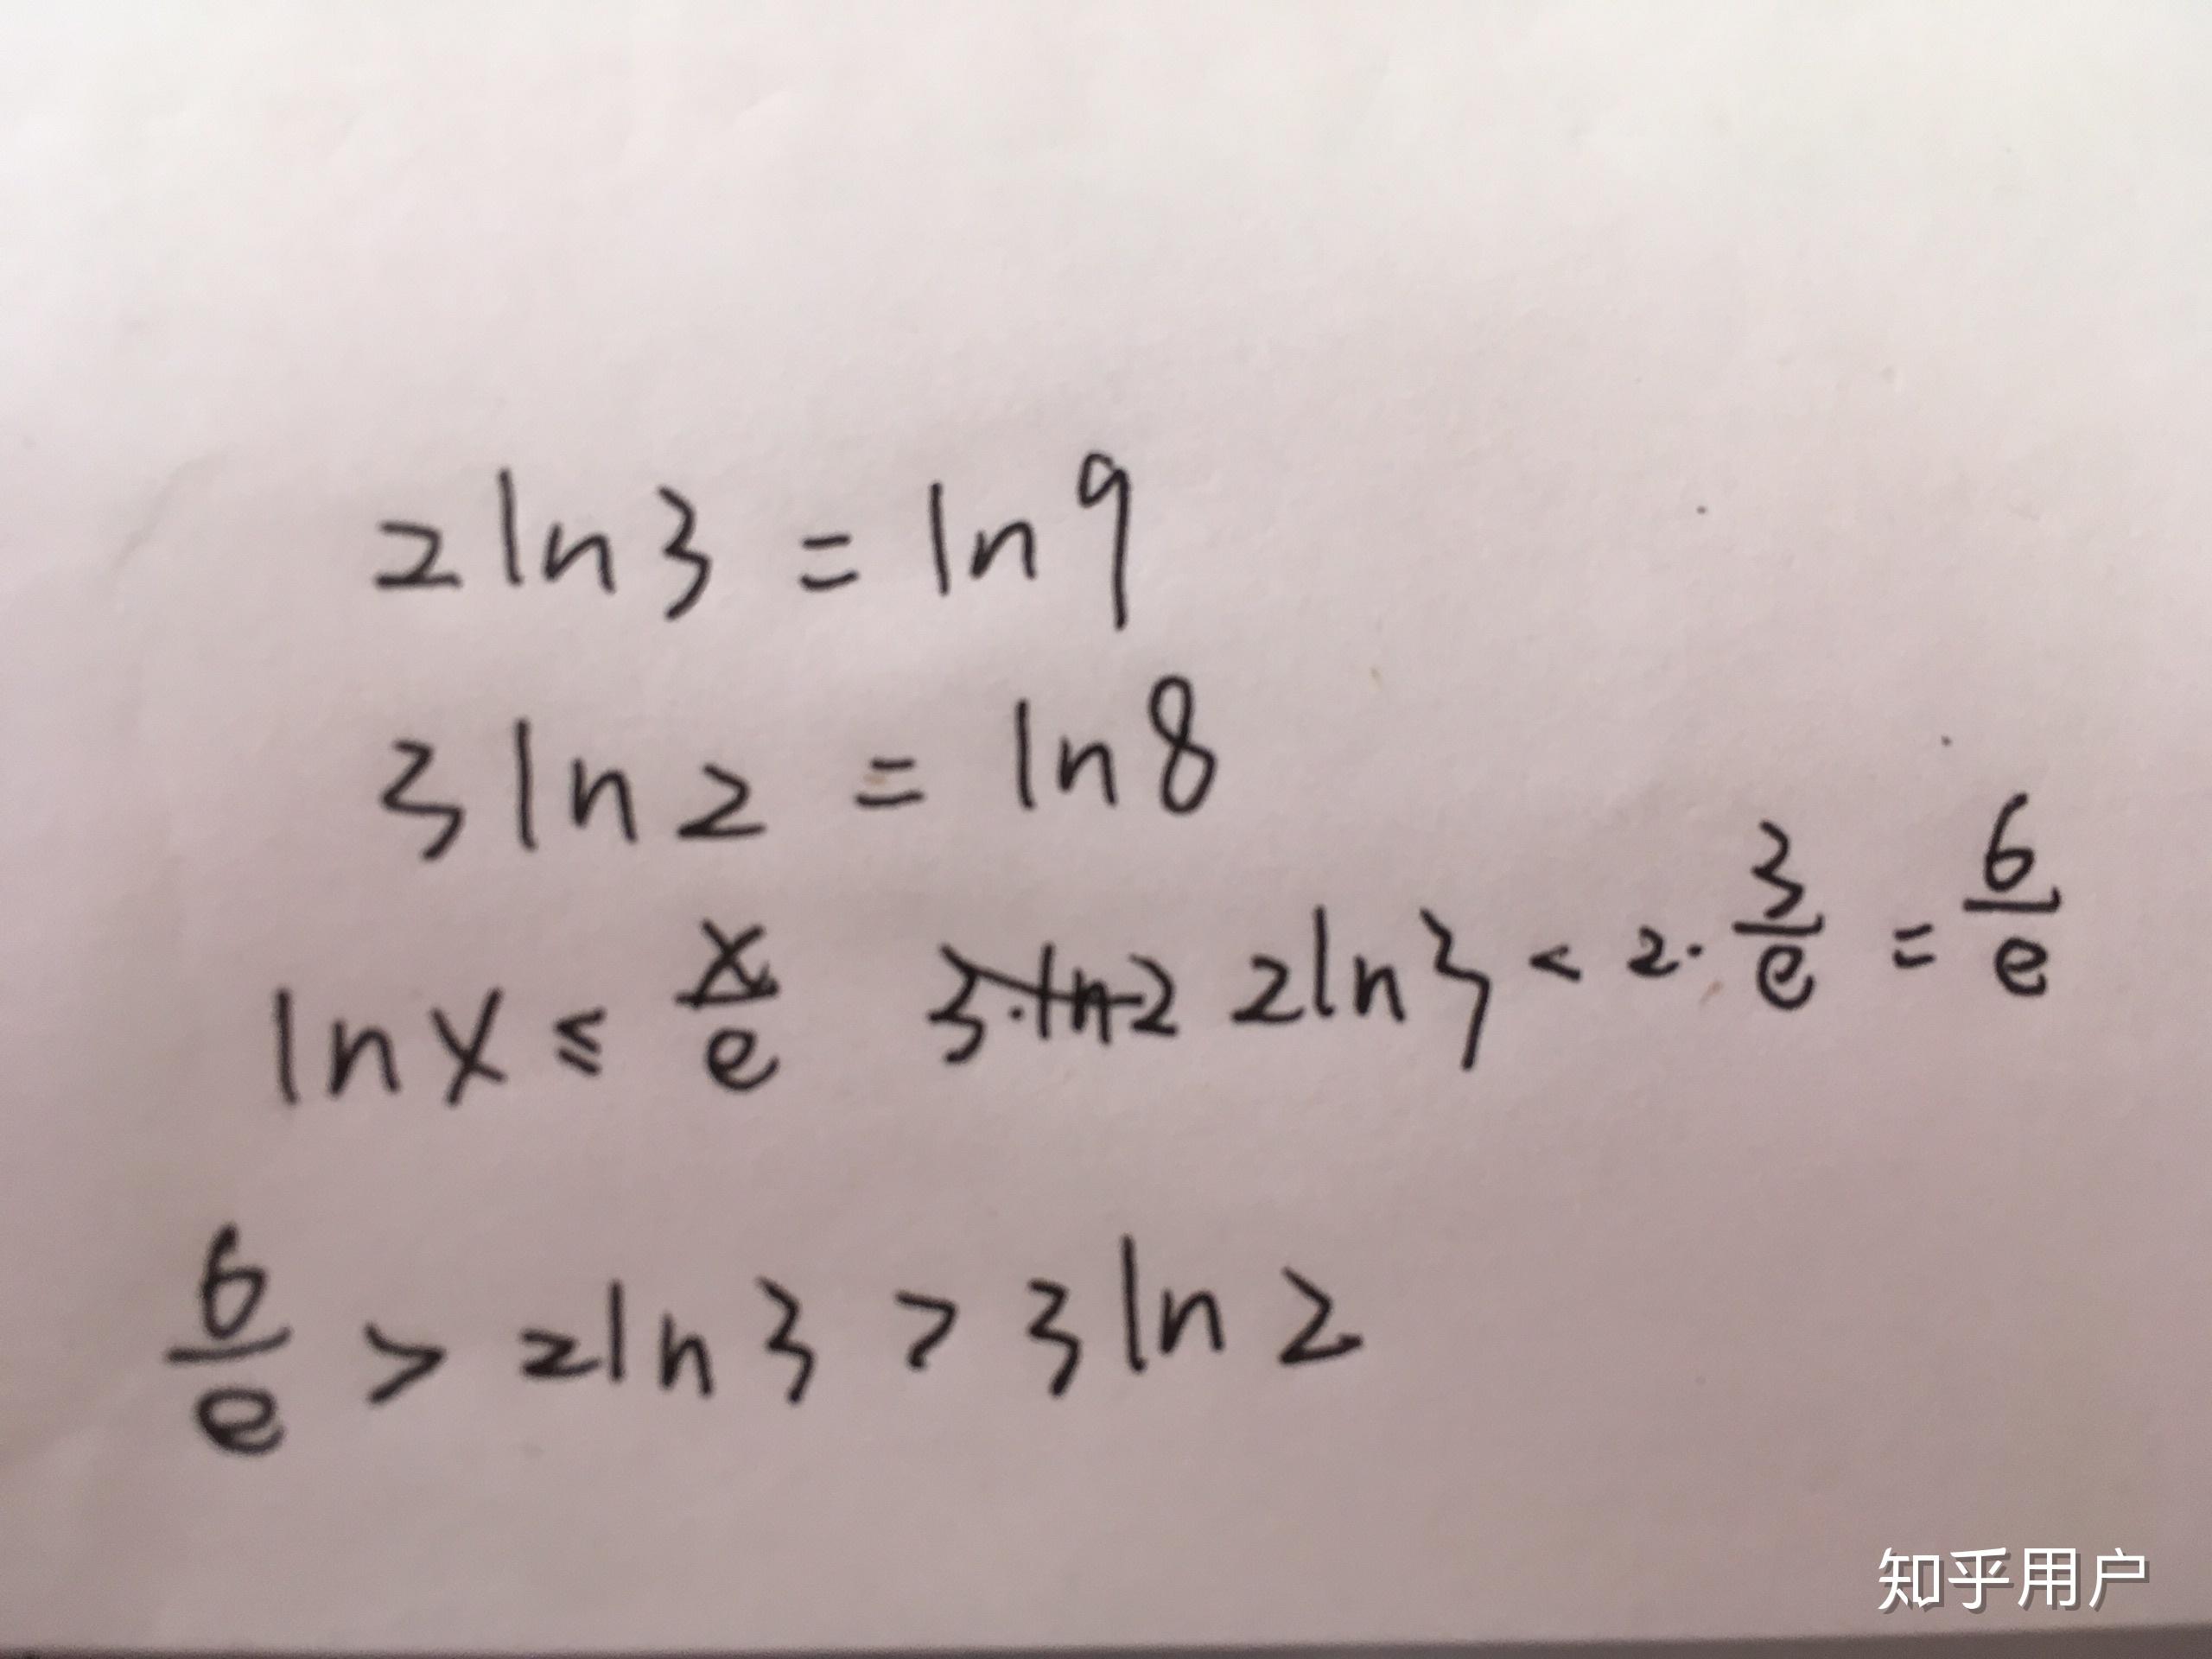 2ln3 = ln9
3ln2 = ln8
lnx ≤ x/e 3·ln2 2ln3 < 2·3/e = 6/e
6/e > 2ln3 > 3ln2
知乎用户